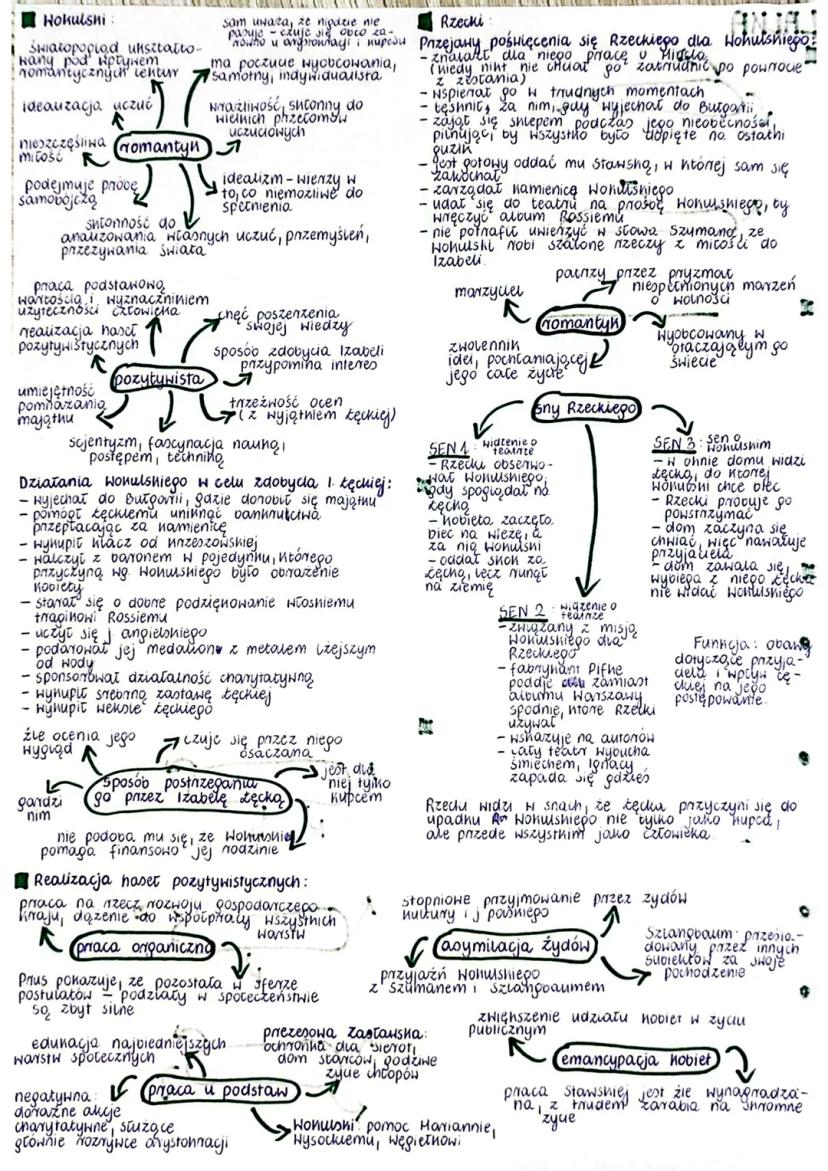 Wokulski:
sam uważa, że nigdzie nie
pasuje - czuje się obco za-
równo u arystokracji i kupców
światopogląd ukształto-
wany pod wpływem
romantycznych lektur
ma poczucie wyobcowania,
samotny, indywidualista
idealizacja uczuć
wrażliwość, skłonny do
wielkich przełomów
uczuciowych
romantyk
nieszczęśliwa
miłość
podejmuje próbę
samobójczą
idealizm - wierzy w
to, co niemożliwe do
spełnienia
skłonność do
analizowania własnych uczuć, przemyśleń,
przeżywania świata
praca podstawową
wartością i wyznacznikiem
użyteczności człowieka
chęć poszerzenia
swojej wiedzy
realizacja haseł
pozytywistycznych
sposób zdobycia Izabeli
przypomina interes
pozytywista
umiejętność
pomnażania
majątku
trzeźwość ocen
(z wyjątkiem Łęckiej)
scjentyzm, fascynacja nauką,
postępem, techniką
Działania Wokulskiego w celu zdobycia I. Łęckiej:
- wyjechał do Bułgarii, gdzie dorobił się majątku
- pomógł Łęckiemu uniknąć bankructwa
przepłacając za kamienicę
- wykupił klacz od Krzeszowskiej
- walczył z baronem w pojedynku, którego
przyczyną wg. Wokulskiego było obrażenie
kobiety
- starał się o dobre podziękowanie włoskiemu
tragikowi Rossiemu
- uczył się j angielskiego
- podarował jej medalion z metalem lżejszym
od wody
- sponsorował działalność charytatywną
- wykupił srebrną zastawę Łęckiej
- wykupił weksle Łęckiego
źle ocenia jego
wygląd
czuje się przez niego
osaczana
sposób postrzegania
go przez Izabelę Łęcką
jest dla
niej tylko
kupcem
gardzi
nim
nie podoba mu się, że Wokulski
pomaga finansowo jej rodzinie
Rzecki:
Przejawy poświęcenia się Rzeckiego dla Wokulskiego:
- znalazł dla niego pracę u Mincla
(kiedy nikt nie chciał go zatrudnić po powrocie
z zesłania)
- wspierał go w trudnych momentach
- tęsknił za nim, gdy wyjechał do Bułgarii
- zajął się sklepem podczas jego nieobecności,
pilnując, by wszystko było dopięte na ostatni
guzik
- jest gotowy oddać mu Stawską, w której sam się
zakochał
- zarządzał kamienicą Wokulskiego
- udał się do teatru na prośbę Wokulskiego, by
wręczyć album Rossiemu
- nie potrafił uwierzyć w słowa Szumana, że
Wokulski robi szalone rzeczy z miłości do
Izabeli.
marzyciel
patrzy przez pryzmat
niespełnionych marzeń
o wolności
romantyk
zwolennik
idei, pochłaniającej
jego całe życie
wyobcowany w
otaczającym go
świecie
sny Rzeckiego
SEN 1: widzenie o
teatrze
- Rzecki obserwo-
wał Wokulskiego,
gdy spoglądał na
Łęcką
- kobieta zaczęła
biec na wieżę, a
za nią Wokulski
- oddał skok za
Łęcką, lecz runął
na ziemię
SEN 2: widzenie o
teatrze
- związany z misją
Wokulskiego dla
Rzeckiego
- fabrykant Pifke
poddje zamiast
albumu Warszawy
spodnie, które Rzecki
używał
- wskazuje na autorów
- cały teatr wybucha
śmiechem, Ignacy
zapada się gdzieś
SEN 3: sen o
Wokulskim
- w oknie domu widzi
Łęcką, do której
Wokulski chce biec
- Rzecki próbuje go
powstrzymać
- dom zaczyna się
chwiać, więc nawołuje
przyjaciela
- dom zawala się,
wybiega z niego Łęcka
nie widać Wokulskiego
Funkcja: obawy
dotyczące przyja-
ciela i wpływ Łę-
ckiej na jego
postępowanie.
Rzecki widzi w snach, że Łęcka przyczyni się do
upadku Wokulskiego nie tylko jako kupca,
ale przede wszystkim jako człowieka.
Realizacja haseł pozytywistycznych:
praca na rzecz rozwoju gospodarczego
kraju, dążenie do współpracy wszystkich
warstw
praca organiczna
Prus pokazuje, że pozostała w sferze
postulatów - podziały w społeczeństwie
są zbyt silne
stopniowe przyjmowanie przez żydów
kultury i j polskiego
asymilacja żydów
przyjaźń Wokulskiego
z Szumanem i Szlangbaumem
Szlangbaum: prześla-
dowany przez innych
subiektów za swoje
pochodzenie
edukacja najbiedniejszych
warstw społecznych
prezesowa Zasławska:
ochronka dla sierot,
dom starców, godziwe
życie chłopów
praca u podstaw
negatywna:
doraźne akcje
charytatywne, służące
głównie rozrywce arystokracji
Wokulski: pomoc Mariannie,
Wysockiemu, Węgiełkowi
zwiększenie udziału kobiet w życiu
publicznym
emancypacja kobiet
praca Stawskiej jest źle wynagradza-
na, z trudem zarabia na skromne
życie